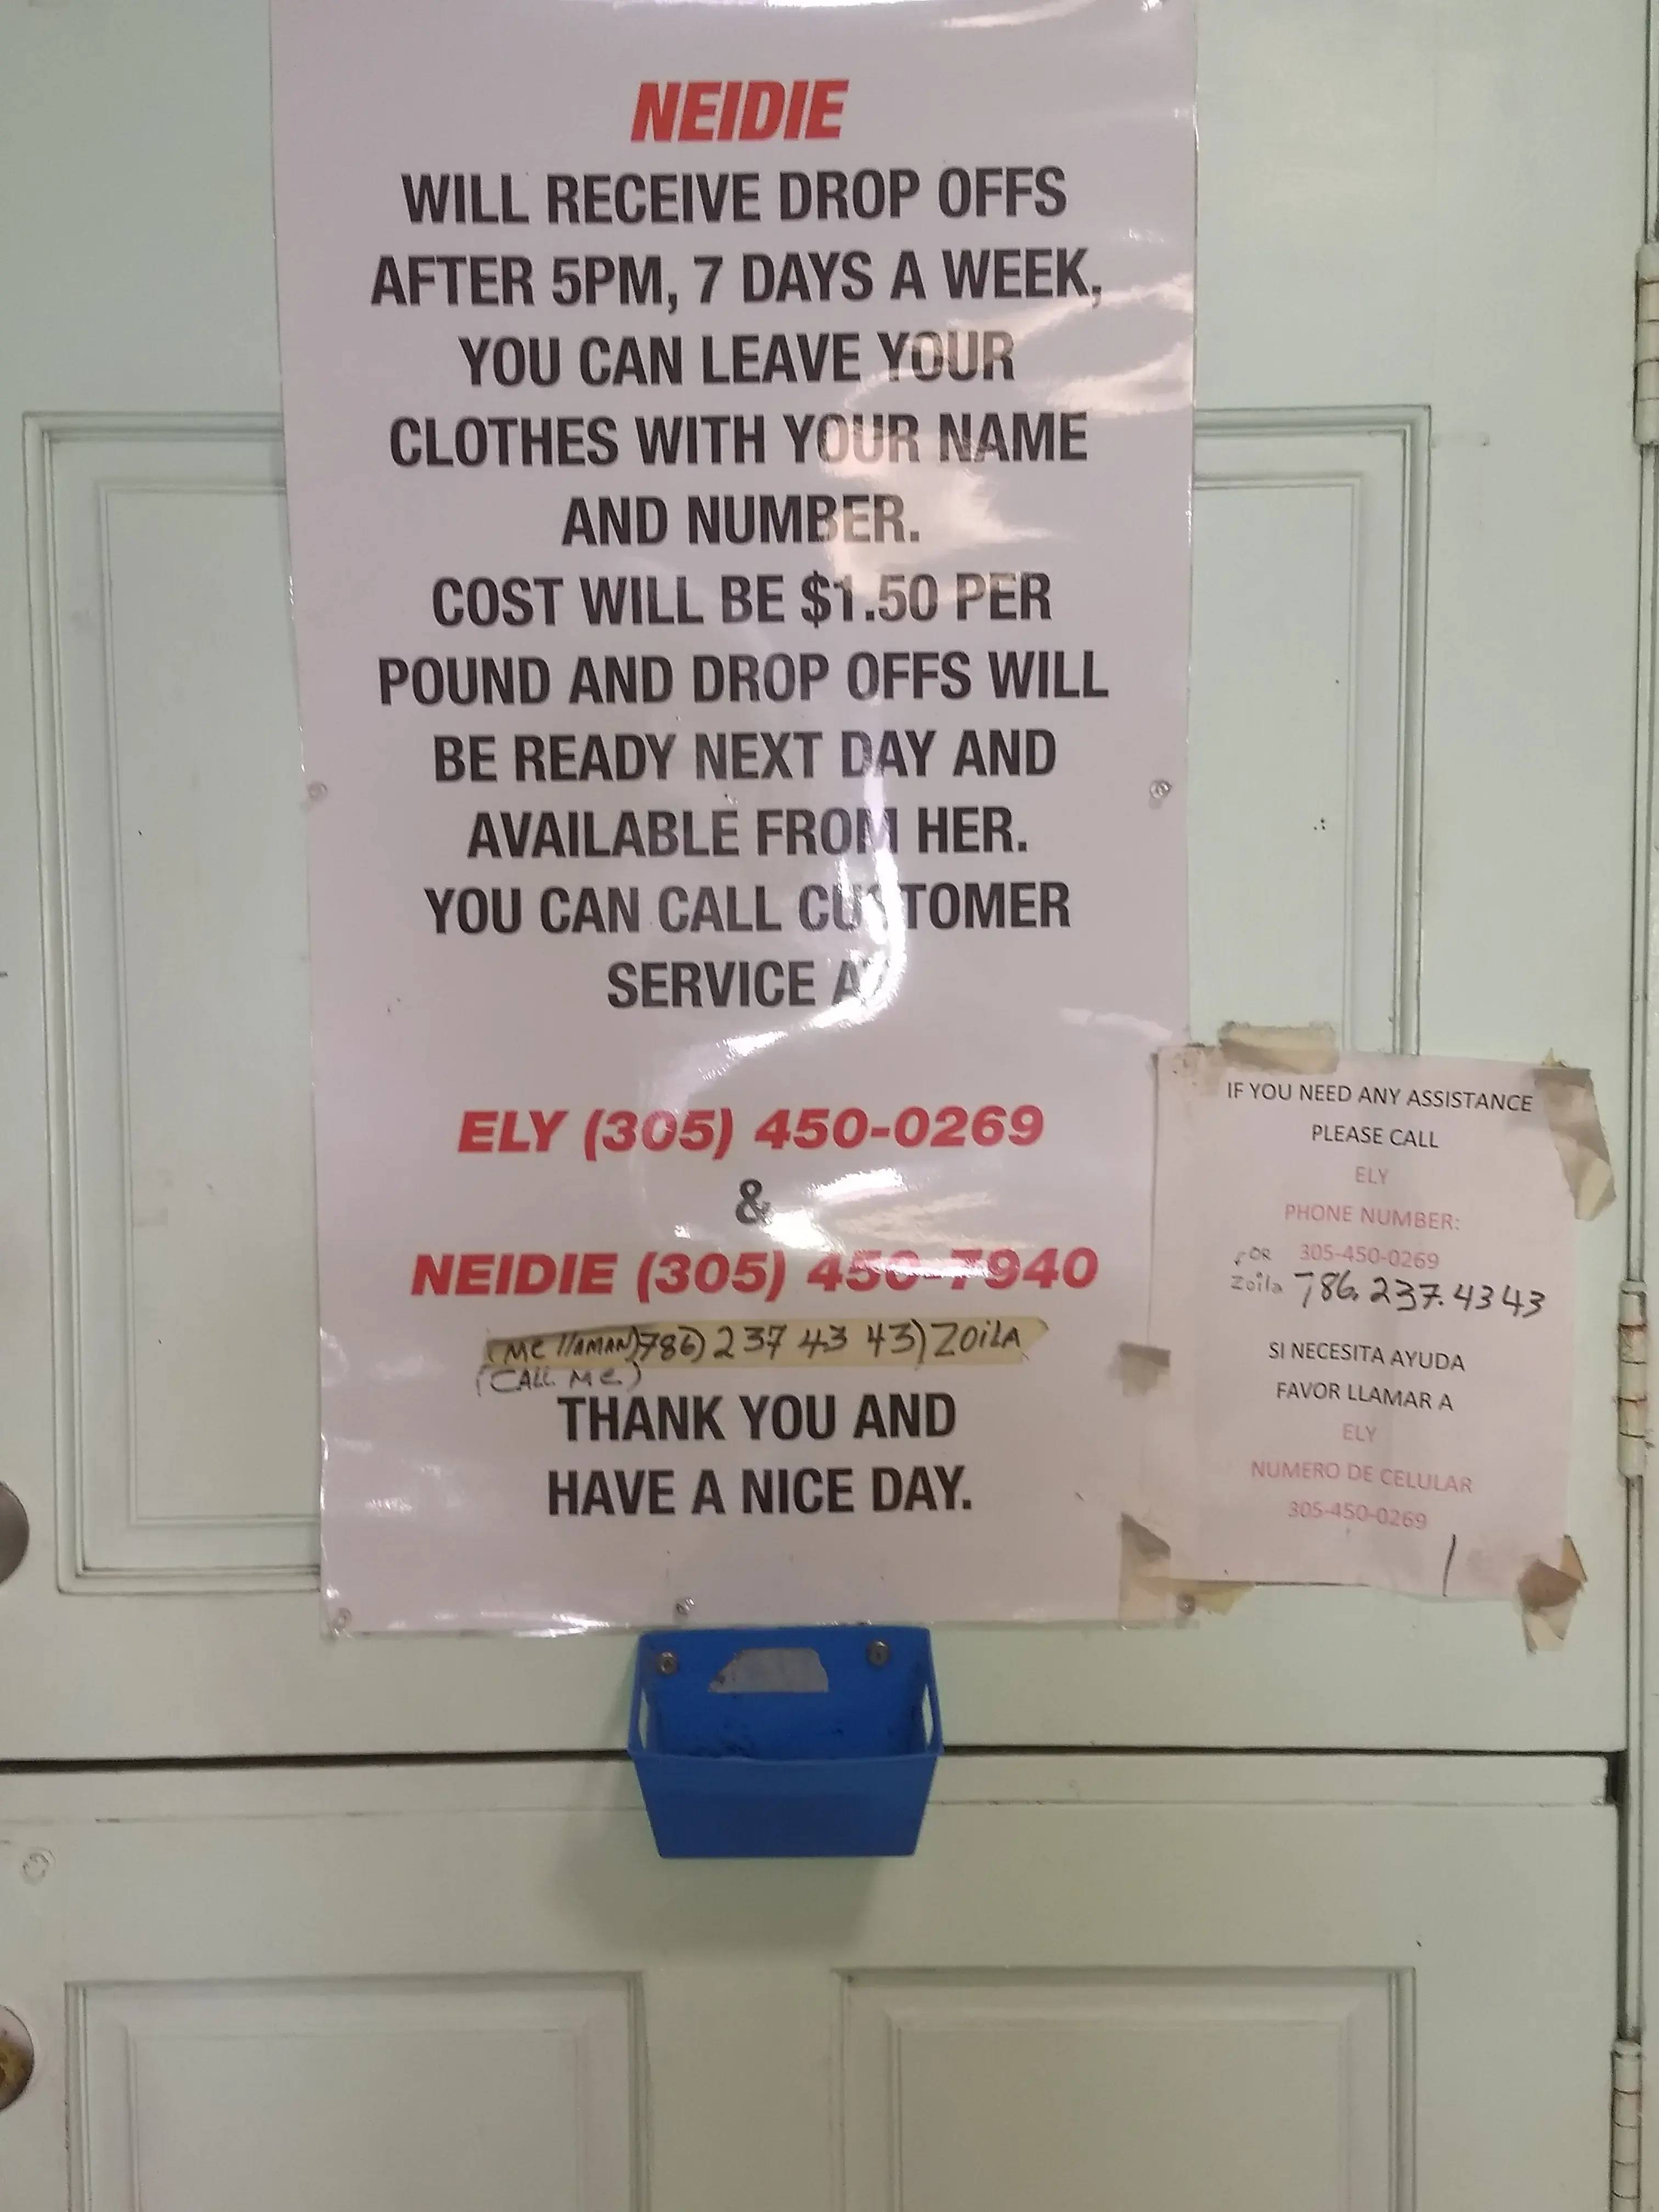 NEIDIE
WILL RECEIVE DROP OFFS
AFTER 5PM, 7 DAYS A WEEK,
YOU CAN LEAVE YOUR
CLOTHES WITH YOUR NAME
AND NUMBER.
COST WILL BE $1.50 PER
POUND AND DROP OFFS WILL
BE READY NEXT DAY AND
AVAILABLE FROM HER.
YOU CAN CALL CUSTOMER
SERVICE AT
ELY (305) 450-0269
&
NEIDIE (305) 450-7940
(ME llAMAN)786) 237 43 43) ZOilA
(CALL Me)
THANK YOU AND
HAVE A NICE DAY.
IF YOU NEED ANY ASSISTANCE
PLEASE CALL
ELY
PHONE NUMBER:
OR 305-450-0269
Zoila 786.237.4343
SI NECESITA AYUDA
FAVOR LLAMAR A
ELY
NUMERO DE CELULAR
305-450-0269